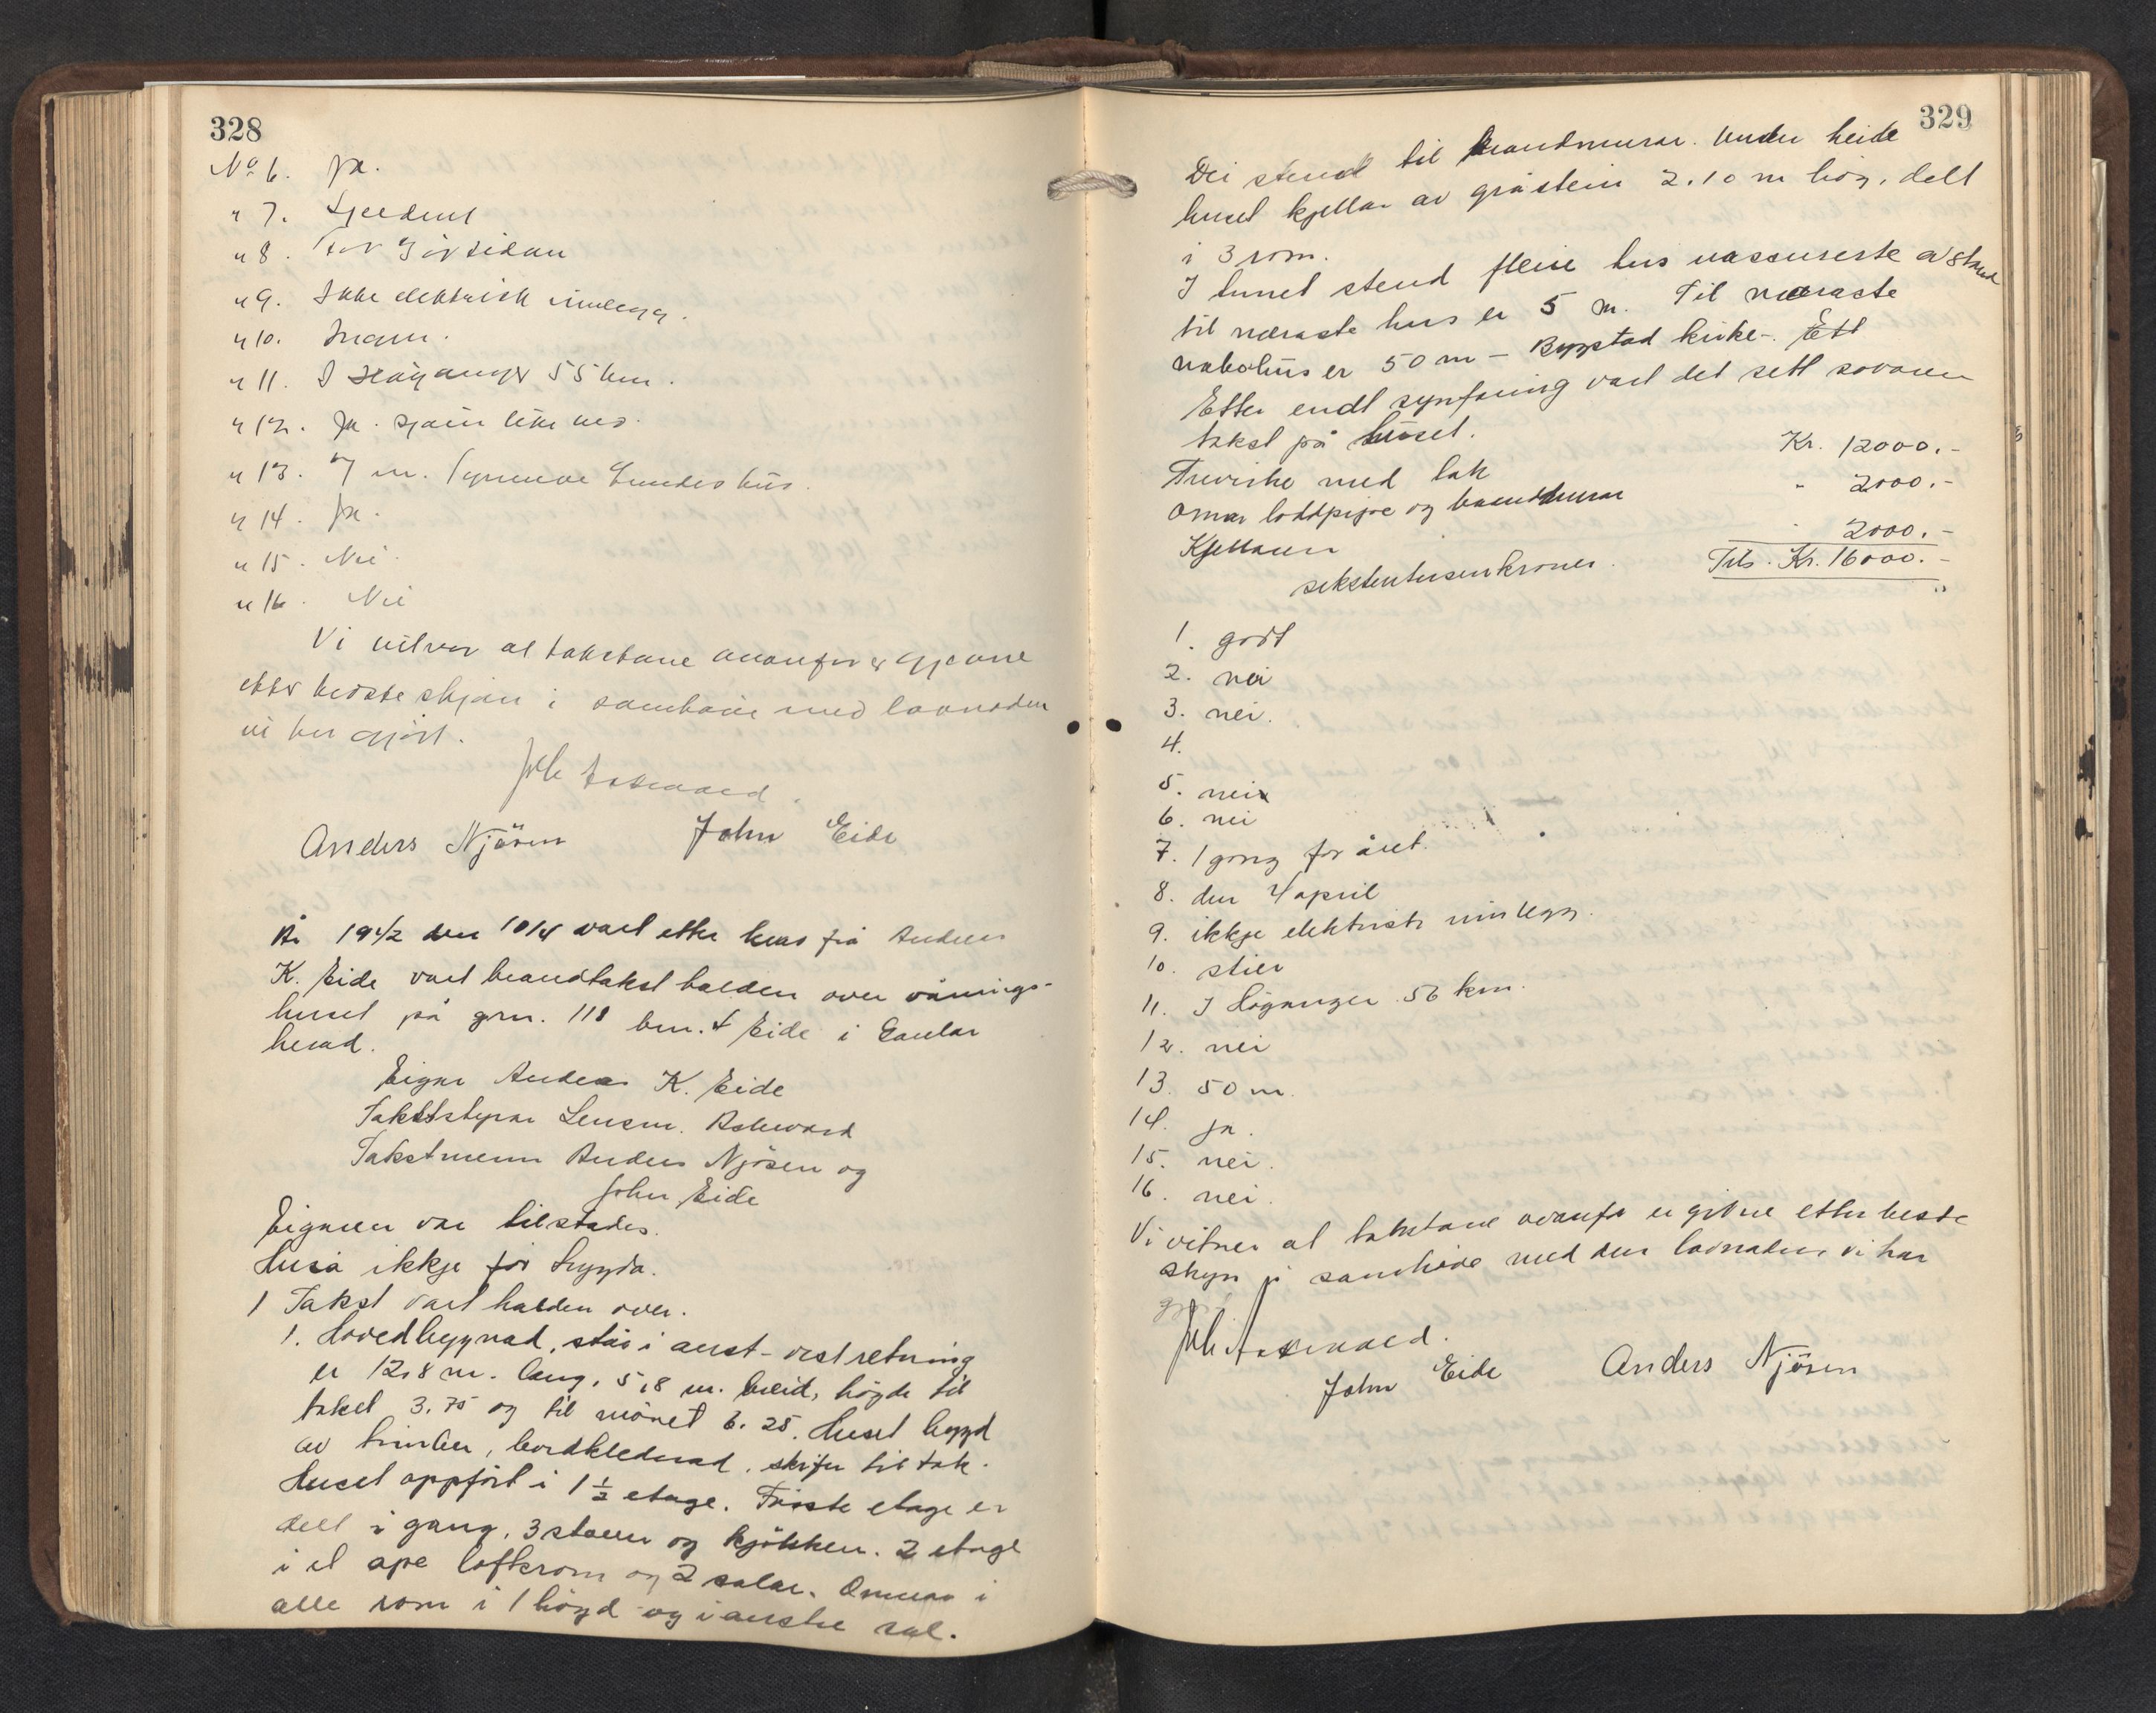 328
No 6. Ja.
" 7. Sjeldent
" 8.
" 9. Ikke elektrisk innlegg.
" 10. Ingen.
" 11. I Høyanger 55 km.
" 12. Ja.
" 13. 7 m. hus.
" 14. Ja.
" 15. Nei.
" 16. Nei
Vi vitner at takstane ovanfor er gjevne
etter beste skjøn i samhøve med lovnaden
vi her gjört.
Anders Njösen John Eide
År 1942 den 10/4 vart etter krav frå Anders
K. Eide vart brandtakst halden over vånings-
huset på grn. 118 brn. 4 Eide i Gaular
herad.
Eigar Anders K. Eide
Takststyrar Lensm. Askevold
Takstmenn Anders Njösen og
John Eide
Eigaren var tilstades.
Husa ikkje för trygda.
1 Takst vart halden over.
1. Hovedbygnad, står i aust-vest retning
er 12,8 m. lang, 5,8 m. breid, högde til
taket 3.75 og til mönet 6.25. Huset bygd
av timber, bordklednad, skifer til tak.
Huset oppfört i 1 1/2 etage. Fröste etage er
delt i gang, 3 stover og kjökken. 2 etage
i et ope loftsrom og 2 salar. Omnar i
alle rom i 1 högd og i austre sal.
329
Dei stend til brandmurar. Under heile
huset kjellar av gråstein 2.10 m hög, delt
i 3 rom.
I tunet stend fleire hus avstand
til næraste hus er 5 m. Til næraste
nabohus er 50 m - Bygstad kirke-. Ett
Etter endt synfaring vart det sett sovoren
takst på huset.
Trevirke med tak Kr. 12000.-
Omnar loddpipe og brandmurar " 2000.-
Kjellaren " 2000.-
sekstentusenkroner. Tils. Kr. 16000.-
1. godt
2. nei
3. nei.
4.
5. nei
6. nei
7. 1 gong for året.
8. den 4 april
9. ikkje elektrisk innlegg.
10.
11. I Höganger 56 km.
12. nei
13. 50 m.
14. ja.
15. nei.
16. nei.
Vi vitner at takstane ovanfor er gitne etter beste
skjön i samhöve med den lovnaden vi har
John Eide Anders Njösen